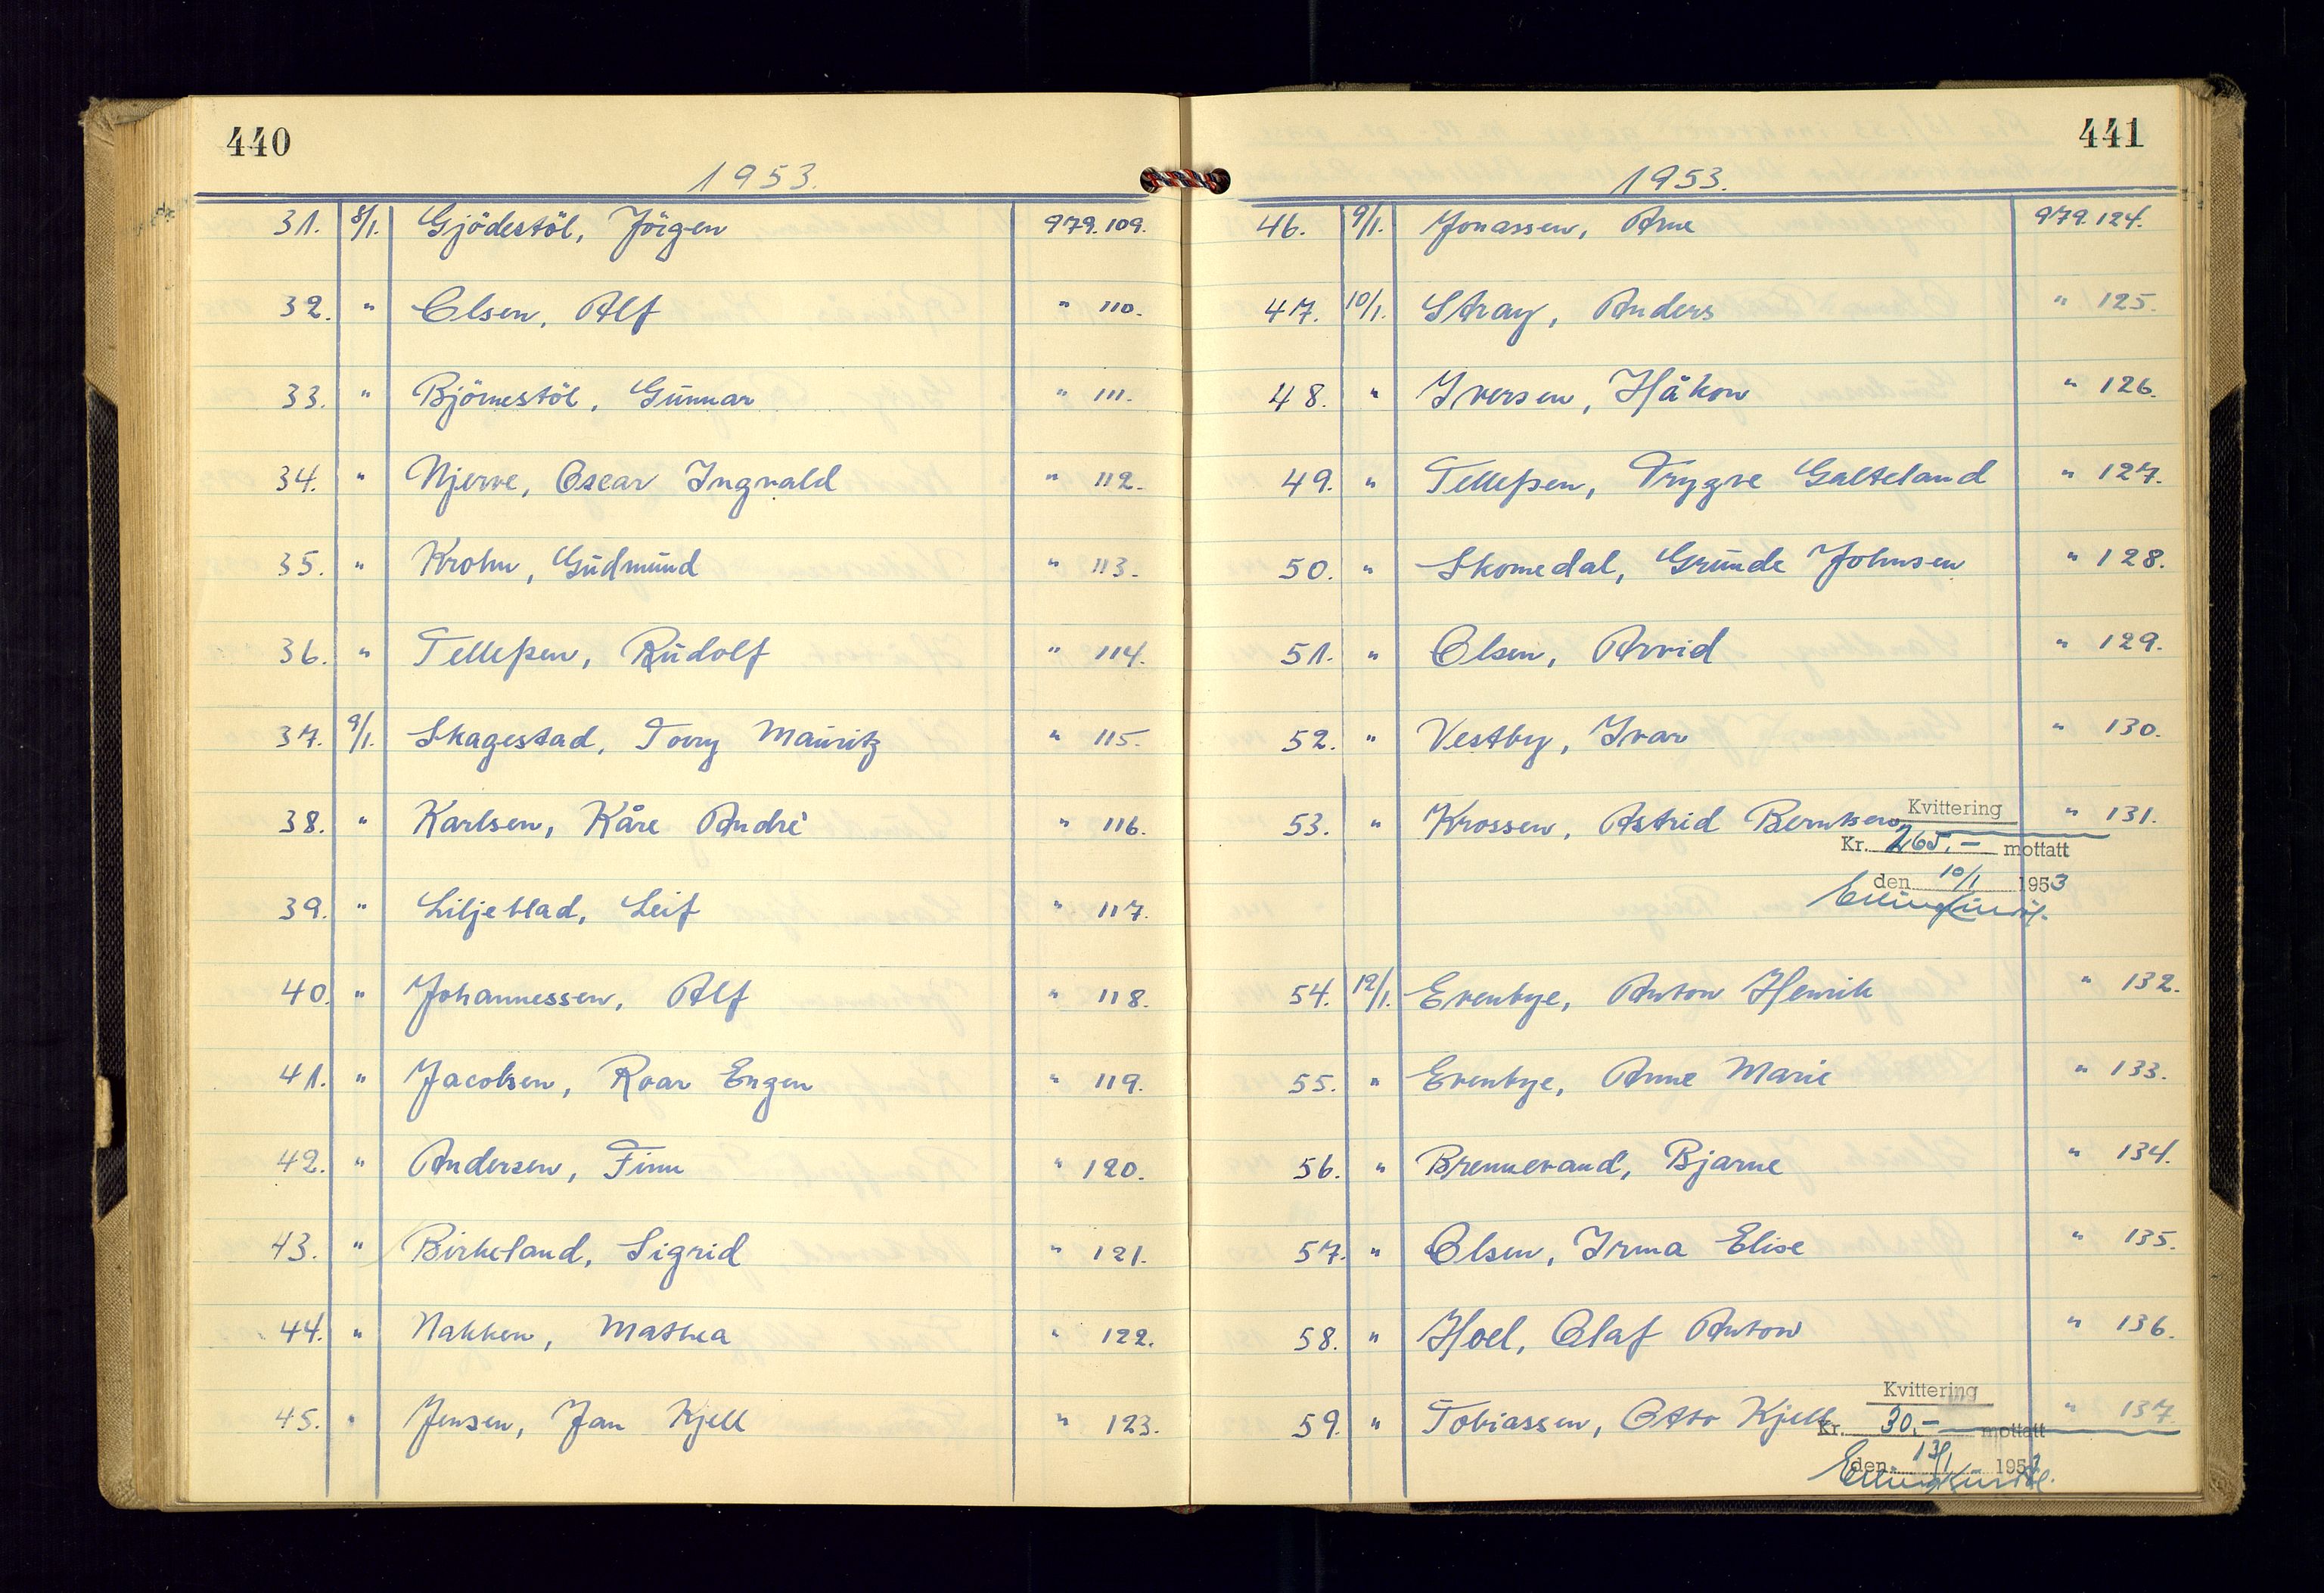 440
1953.
31. 8/1. Gjödestöl, Jörgen 979.109.
32. " Olsen, Alf " 110.
33. " Björnestöl, Gunnar " 111.
34. " Njerve, Oscar Ingvald " 112.
35. " Krohn, Gudmund " 113.
36. " Tellefsen, Rudolf " 114.
37. 9/1. Skagestad, Tovry Mauritz " 115.
38. " Karlsen, Kåre André " 116.
39. " Liljeblad, Leif " 117.
40. " Johannessen, Alf " 118.
41. " Jacobsen, Roar Engen " 119.
42. " Andersen, Finn " 120.
43. " Birkeland, Sigrid " 121.
44. " Nakken, Mathea " 122.
45. " Jensen, Jan Kjell " 123.
441
1953.
46. 9/1. Jonassen, Arne 979.124.
47. 10/1. Stray, Anders " 125.
48. " Iversen, Håkon " 126.
49. " Tellefsen, Trygve Galteland " 127.
50. " Skomedal, Grunde Johnsen " 128.
51. " Olsen, Arvid " 129.
52. " Vestby, Ivar " 130.
53. " Krossen, Astrid Berntsen " 131.
Kvittering
Kr. 265.- mottatt
den 10/1 1953
54. 12/1. Evenbye, Anton Henrik " 132.
55. " Evenbye, Anne Marie " 133.
56. " Brennevand, Bjarne " 134.
57. " Olsen, Irma Elise " 135.
58. " Hoel, Olaf Anton " 136.
59. " Tobiassen, Otto Kjell " 137.
Kvittering
Kr. 30.- mottatt
den 13/1 1953